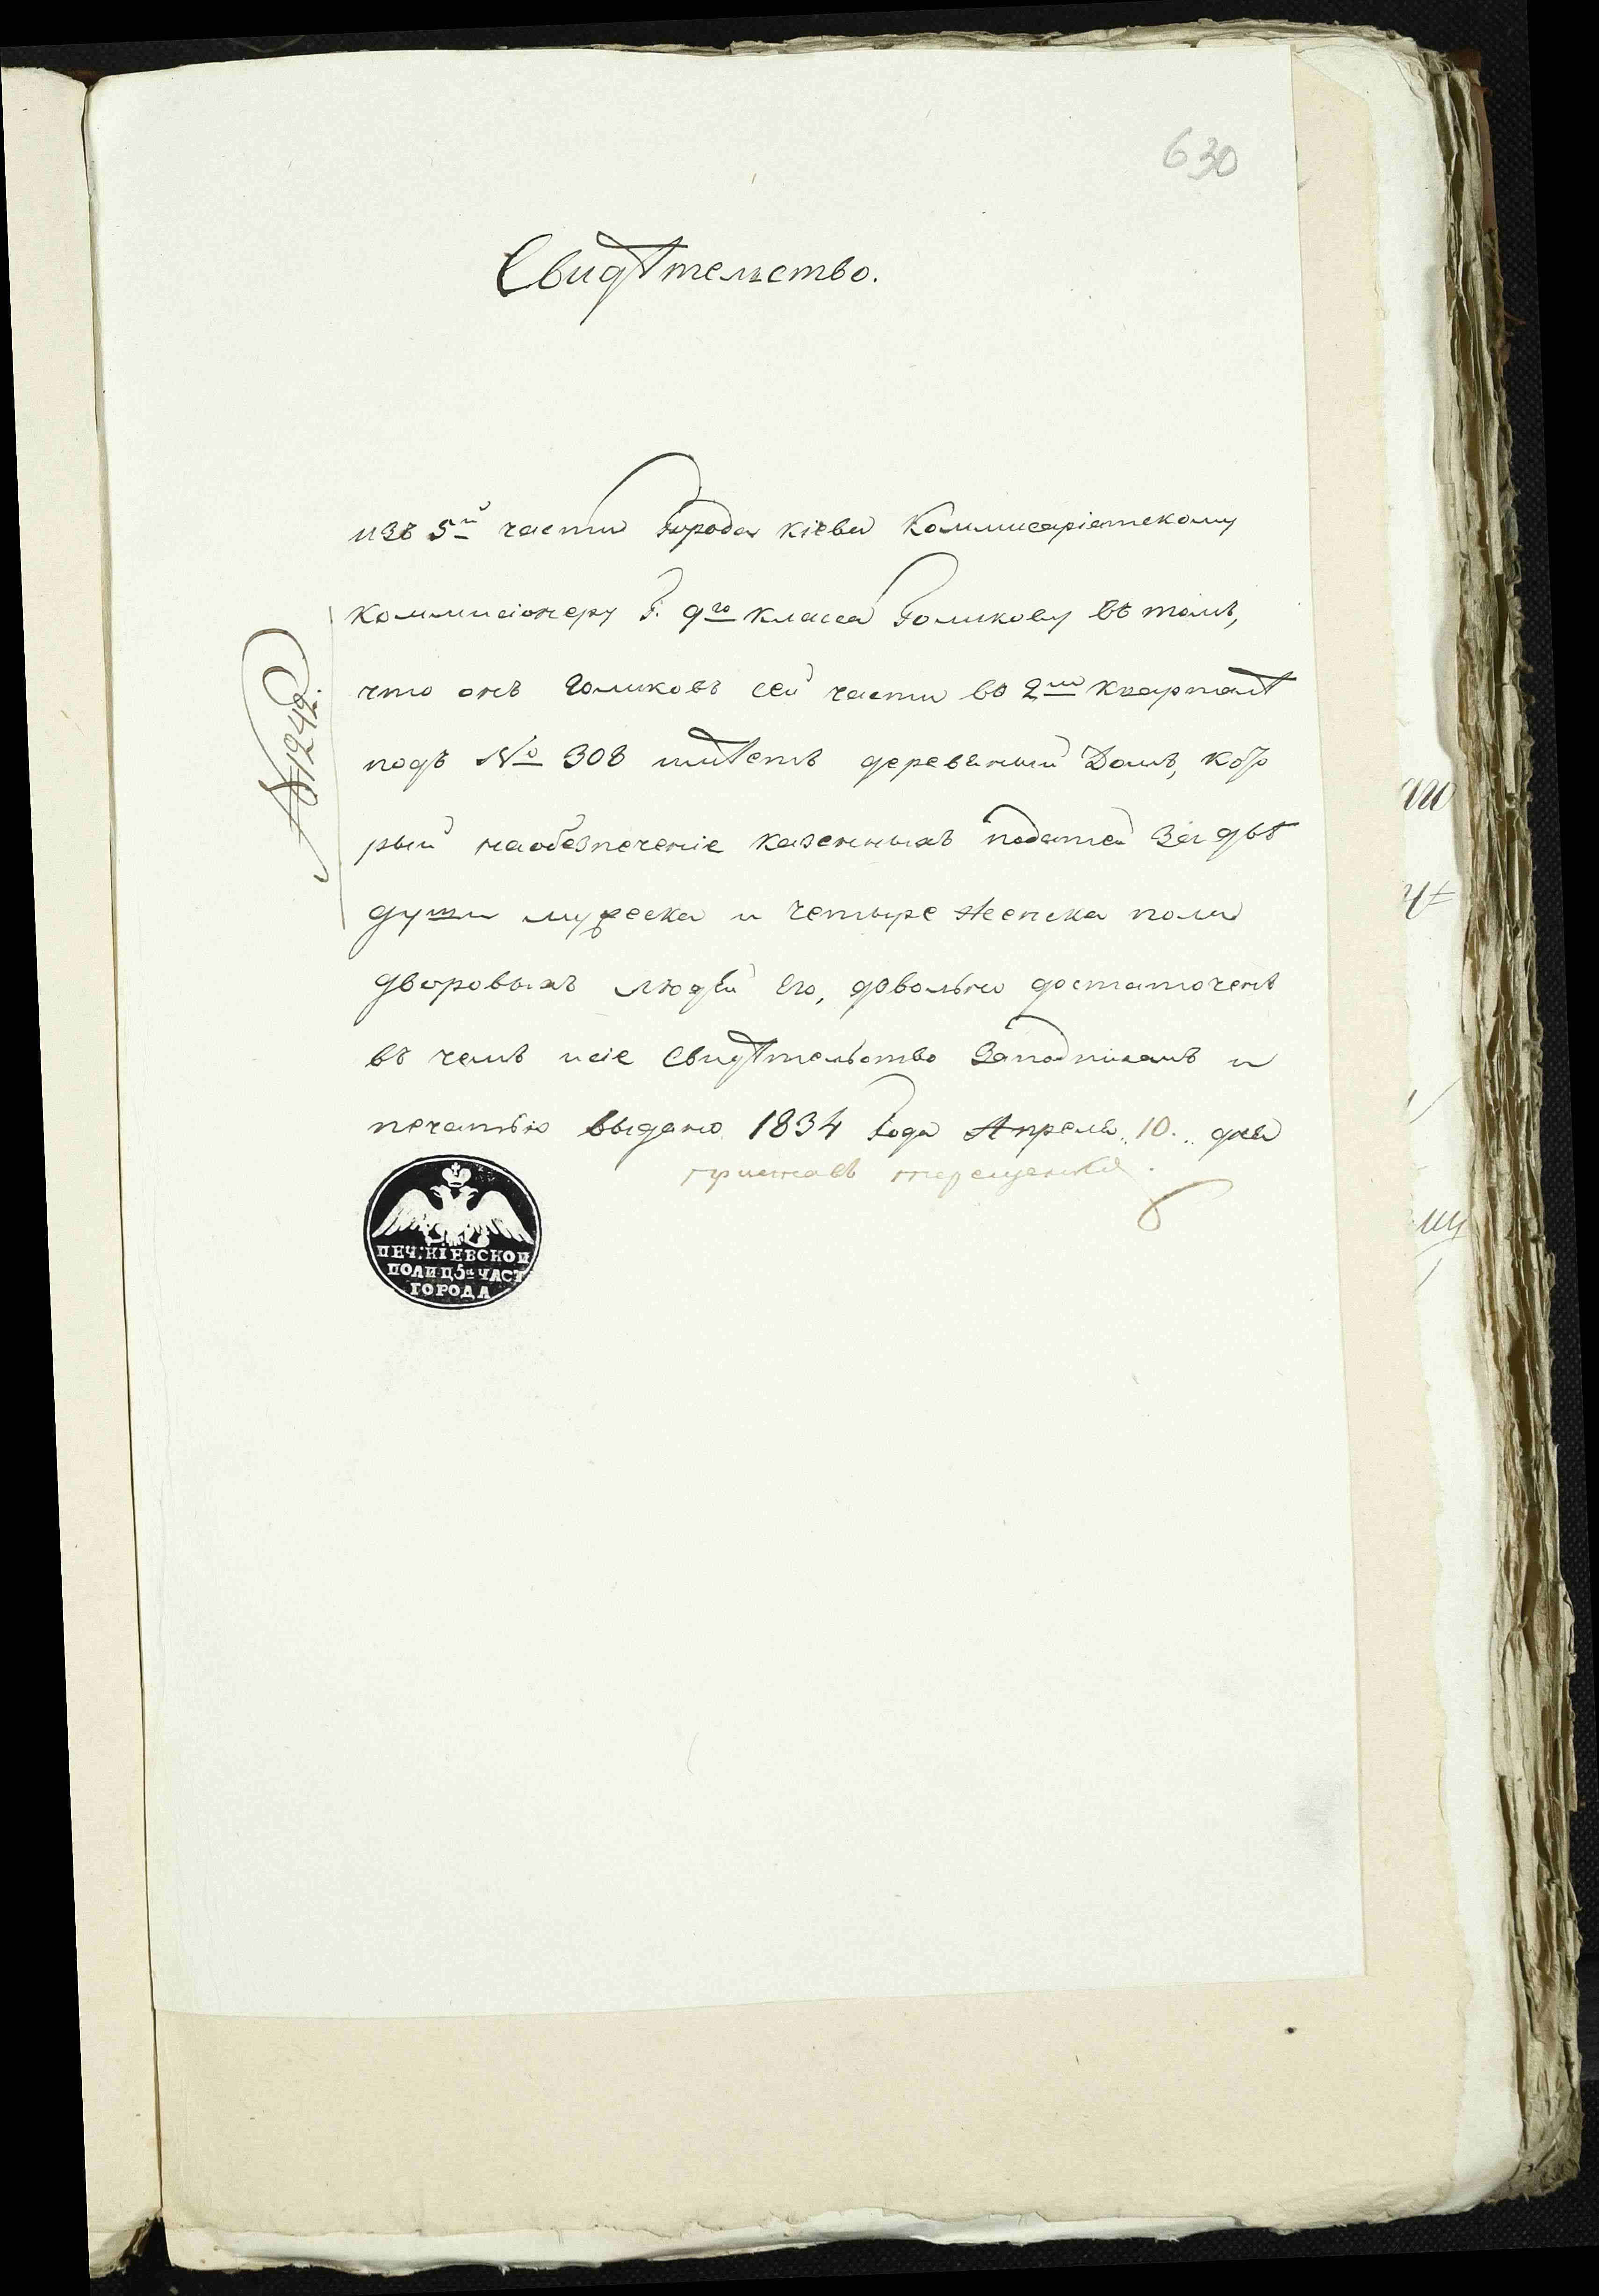 630
Свидѣтельство.
изъ 5й части Города Кіева Коммисаріятскому
№ 1242.
Коммисіонеру Г. 9го класса Голикову въ томъ,
что онъ Голиковъ сей части во 2м кварталѣ
подъ № 308 имѣетъ деревяный Домъ, кото
рый наобезпеченіе казенныхъ податей за двѣ
души мужеска и четыре женска пола
дворовыхъ людей его, довольно достаточенъ
въ чемъ и сіе свидѣтельство заподписомъ и
печатью выдано 1834 Года Апреля „10„ дня
приставъ терещенко
ПЕЧ. КІЕВСКОЙ
ПОЛИЦ 5й ЧАСТ
ГОРОДА